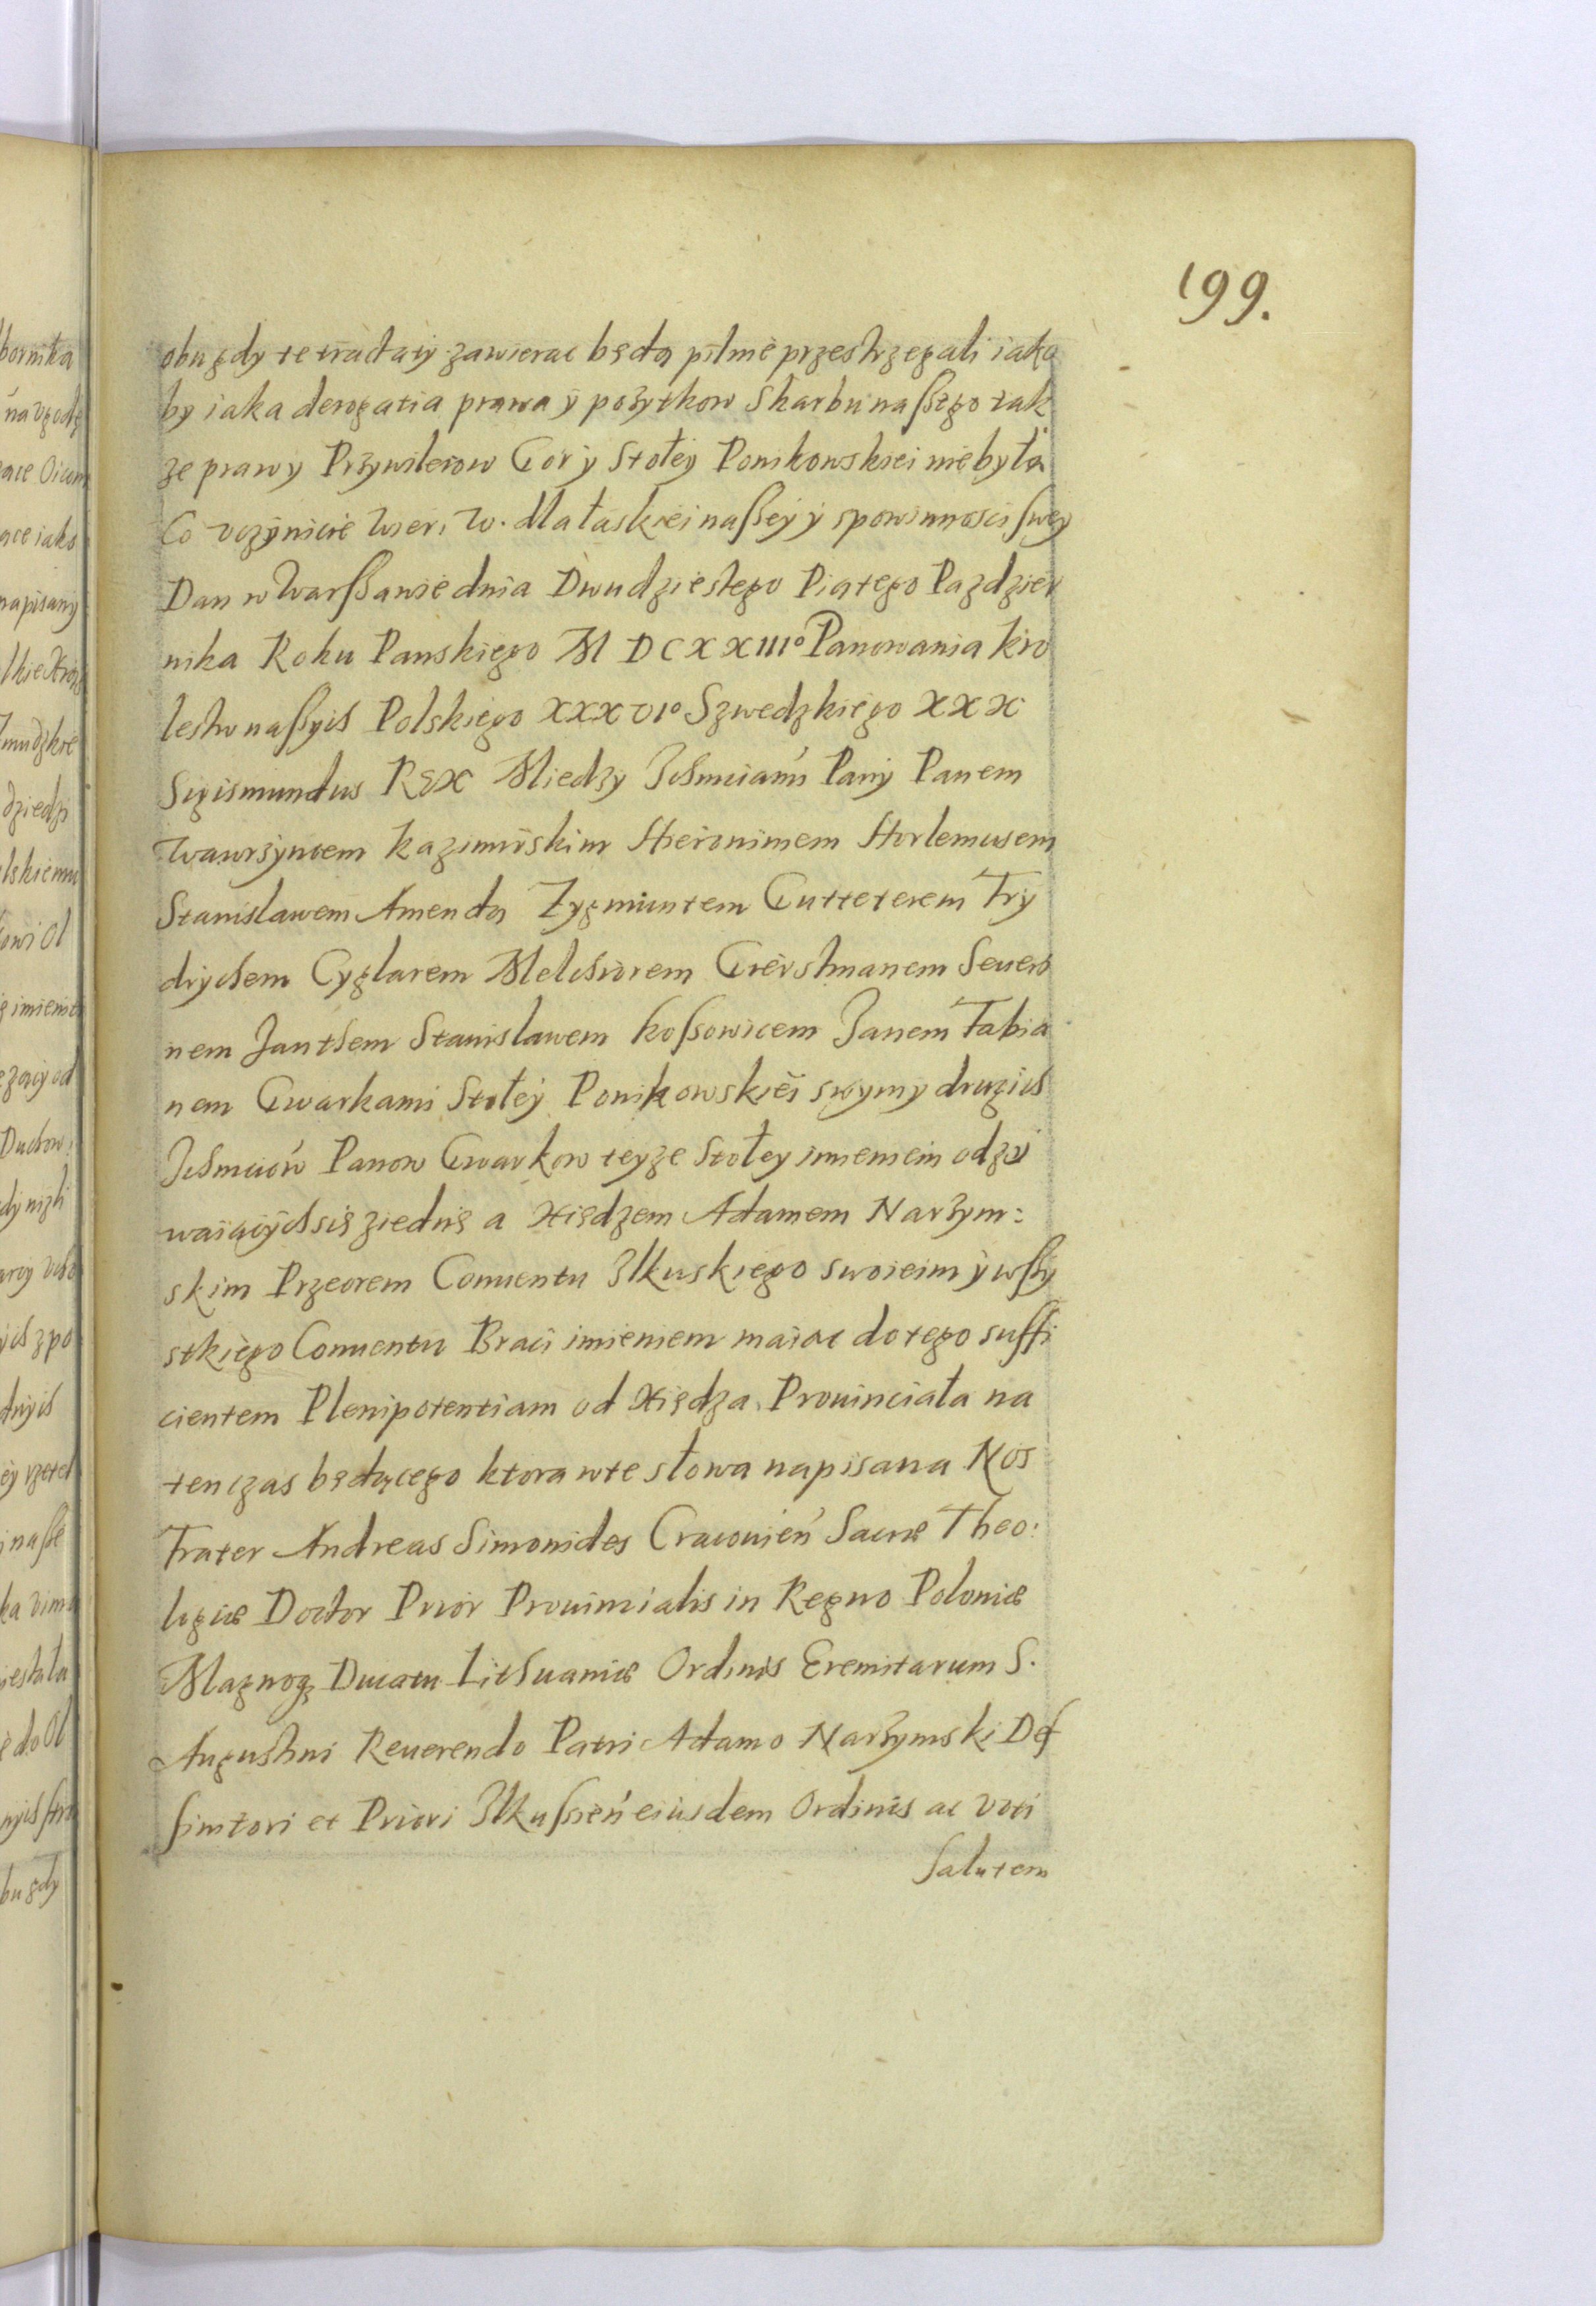 199.
obu gdy te tractaty zawierac będą pilnie przestrzegali iako
by iaka derogatia prawa y pożytkow Skarbu naßego tak
ze prawy Przywileiow Gor y Stoły Ponikowskiei nie była
Co vczynicie Wier. W. dla łaskiei naßey y spowinnosci swey
Dan w Warßawie dnia Dwudziestego Piątego Pazdzier
nika Roku Panskiego M D C X X III° Panowania Kro
lestw naßych Polskiego XXXVI° Szwedzkiego XXX
Sigismundus Rex Miedzy Ichmciami Pany Panem
Wawrzyncem Kazimirskim Hieronimem Horlemusem
Stanislawem Amendą Zygmuntem Gutteterem Fry
drychem Cyglarem Melchiorem Gierstmanem Seuery
nem Janthem Stanislawem Kossowicem Janem Fabia
nem Gwarkami Stoły Ponikowskiei swymy drugich
Ichmciow Panow Gwarkow teyze Stoły imieniem odzy
waiących się ziednę a Xiędzem Adamem Narzym:
skim Przeorem Conuentu Ilkuskiego swoieim y wßy
stkiego Conuentu Braci imieniem maiąc do tego suffi
cientem Plenipotentiam od Xiędza Prouinciała na
ten czas będącego ktora w te słowa napisana Nos
Frater Andreas Simonides Cracouien Sacræ Theo:
logiæ Doctor Prior Prouincialis in Regno Poloniæ
Magnoq Ducatu Lithuaniæ Ordinis Eremitarum S.
Augustini Reuerendo Patri Adamo Narzymski Def
finitori et Priori Ilkussien eiusdem Ordinis ac voti
Salutem